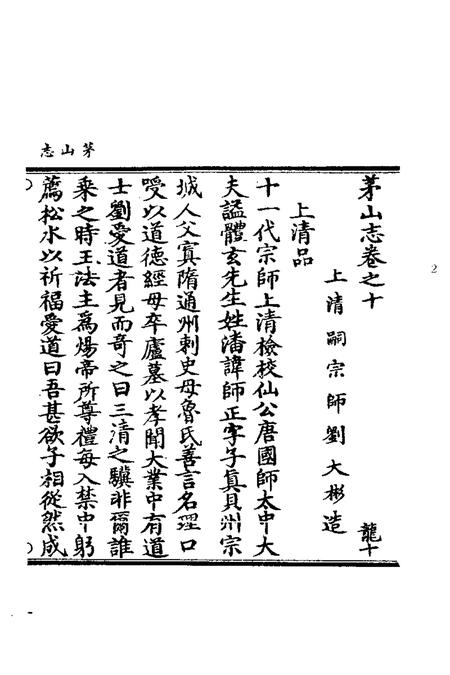 茅山志
茅山志卷之十 龍十
上清嗣宗師劉大彬造
上清品
十一代宗師上清檢校仙公唐國師太中大
夫謚體玄先生姓潘諱師正字子真貝州宗
城人父寘隋通州刺史母魯氏善言名理口
受以道德經母卒廬墓以孝聞大業中有道
士劉愛道者見而奇之曰三清之驥非爾誰
乘之時王法主為煬帝所尊禮每入禁中躬
薦松水以祈福愛道曰吾甚欲子相從然成
2